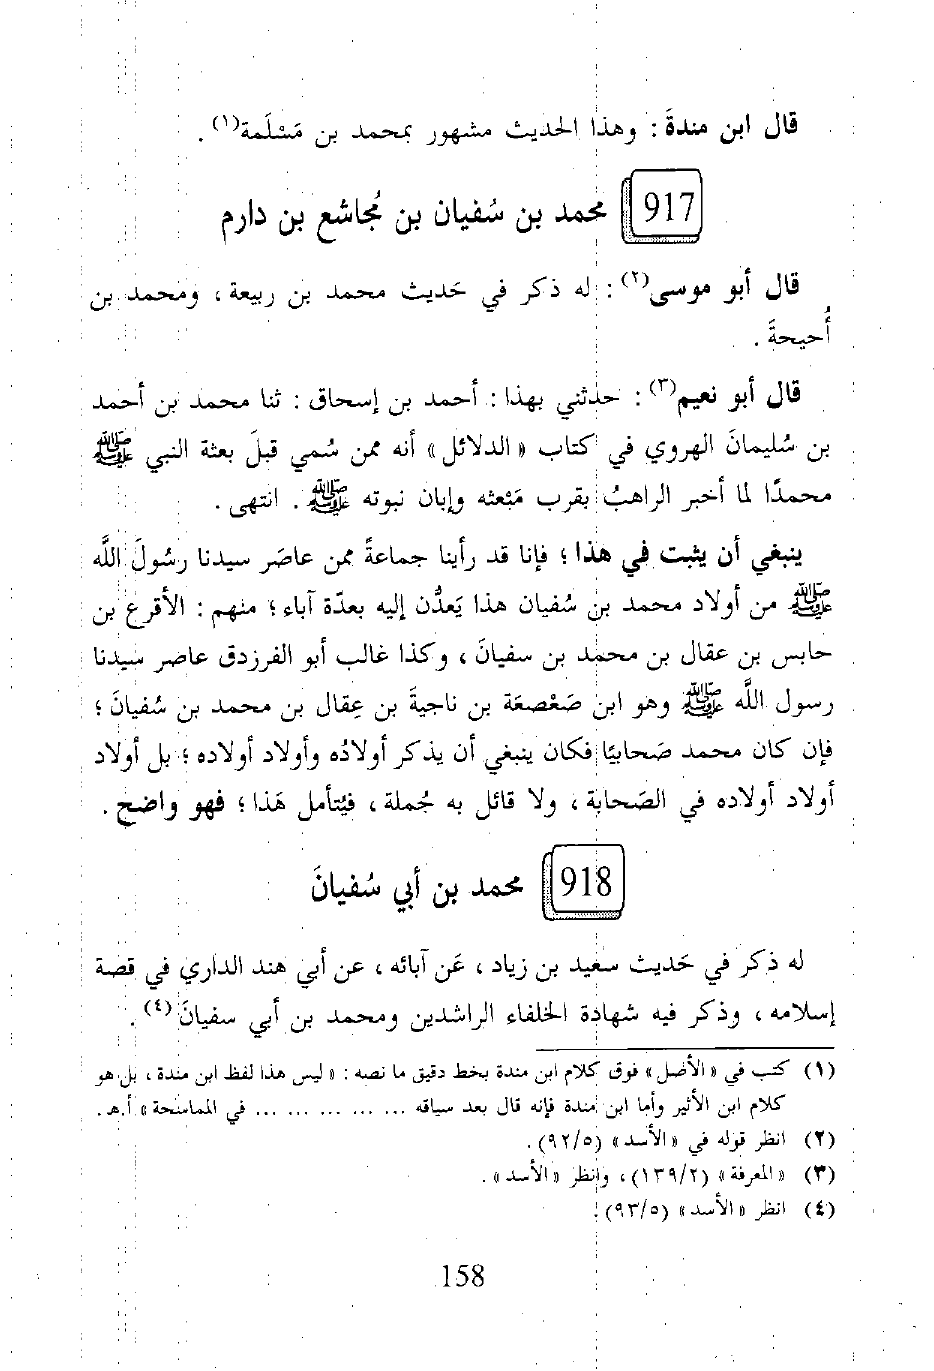 قال ابن مندةَ : وهذا الحديث مشهور بمحمد بن مَسْلَمة(١) .
917 محمد بن سُفيان بن مُجاشع بن دارم
قال أبو موسى(٢) : له ذكر في حَديث محمد بن ربيعة ، ومحمد بن
أُحيحةَ .
قال أبو نعيم(٣) : حدثني بهذا : أحمد بن إسحاق : ثنا محمد بن أحمد
بن سُليمانَ الهروي في كتاب « الدلائل » أنه ممن سُمي قبلَ بعثة النبي ﷺ
محمدًا لما أخبر الراهبُ بقرب مَبْعثه وإبان نبوته ﷺ . انتهى .
ينبغي أن يثبت في هذا ؛ فإنا قد رأينا جماعةً ممن عاصَر سيدنا رسُولَ اللَّه
ﷺ من أولاد محمد بن سُفيان هذا يَعدُّن إليه بعدّة آباء ؛ منهم : الأقرع بن
حابس بن عقال بن محمد بن سفيانَ ، وكذا غالب أبو الفرزدق عاصر سيدنا
رسول اللَّه ﷺ وهو ابن صَعْصعَة بن ناجيةَ بن عِقال بن محمد بن سُفيانَ ؛
فإن كان محمد صَحابيًا فكان ينبغي أن يذكر أولادُه وأولاد أولاده ؛ بل أولاد
أولاد أولاده في الصَحابة ، ولا قائل به جُملة ، فيُتأمل هَذا ؛ فهو واضح .
918 محمد بن أبي سُفيانَ
له ذكر في حَديث سعيد بن زياد ، عَن آبائه ، عن أبي هند الداري في قصة
إسلامه ، وذكر فيه شهادة الخلفاء الراشدين ومحمد بن أبي سفيانَ(٤) .
(١) كتب في « الأصل » فوق كلام ابن مندة بخط دقيق ما نصه : « ليس هذا لفظ ابن مندة ، بل هو
كلام ابن الأثير وأما ابن مندة فإنه قال بعد سياقه ... ... ... ... ... في المماسحة » أ.هـ .
(٢) انظر قوله في « الأسد » (٩٢/٥) .
(٣) « المعرفة » (١٣٩/٢) ، وانظر « الأسد » .
(٤) انظر « الأسد » (٩٣/٥) .
158